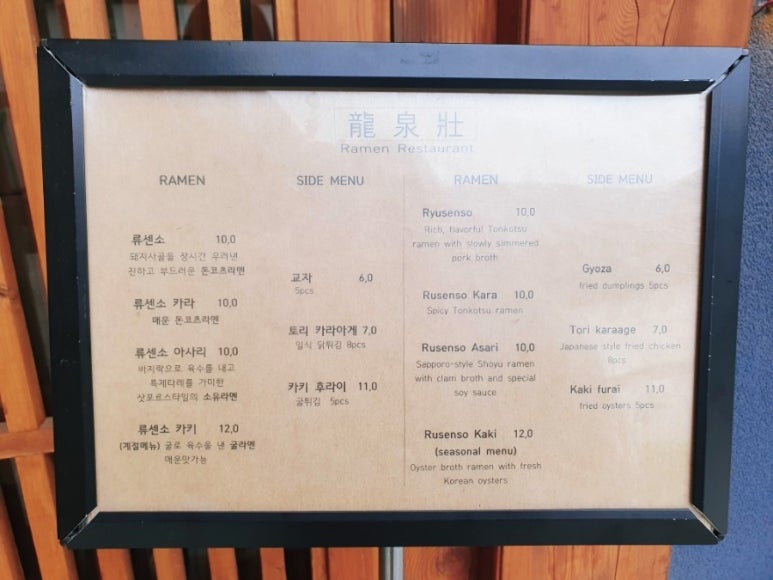 龍泉壯
Ramen Restaurant
RAMEN
류센소 10,0
돼지사골을 장시간 우려낸
진하고 부드러운 돈코츠라멘
류센소 카라 10,0
매운 돈코츠라멘
류센소 아사리 10,0
바지락으로 육수를 내고
특제타레를 가미한
삿포르스타일의 소유라멘
류센소 카키 12,0
(계절메뉴) 굴로 육수을 낸 굴라멘
매운맛가능
SIDE MENU
교자 6,0
5pcs
토리 카라아게 7,0
일식 닭튀김 8pcs
카키 후라이 11,0
굴튀김 5pcs
RAMEN
Ryusenso 10,0
Rich, flavorful Tonkotsu
ramen with slowly slimmered
pork broth
Rusenso Kara 10,0
Spicy Tonkotsu ramen
Rusenso Asari 10,0
Sapporo-style Shoyu ramen
with clam broth and special
soy sauce
Rusenso Kaki 12,0
(seasonal menu)
Oyster broth ramen with fresh
Korean oysters
SIDE MENU
Gyoza 6,0
fried dumplings 5pcs
Tori karaage 7,0
Japanese style fried chicken
8pcs
Kaki furai 11,0
fried oysters 5pcs